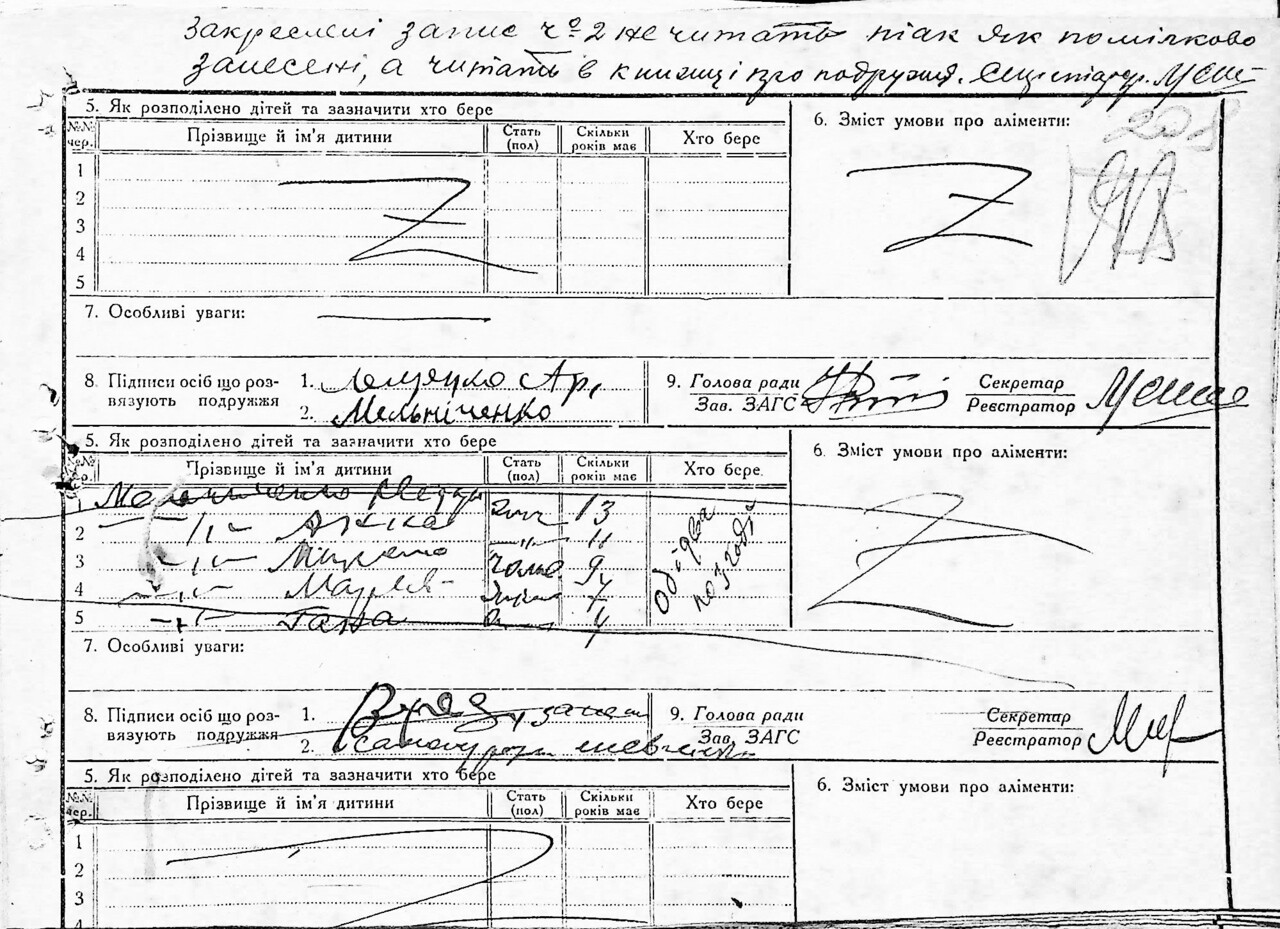 Закреслені запис ч⁰ 2 не читать так як помілково
занесені, а читать в книжці про подружжя.
5. Як розподілено дітей та зазначити хто бере
6. Зміст умови про аліменти:
208
№№ чер. Прізвище й ім'я дитини Стать (пол) Скільки років має Хто бере
1
2
3
4
5
7. Особливі уваги:
8. Підписи осіб що роз-
вязують подружжя
1.
2. Мельніченко
9. Голова ради
Зав. ЗАГС
Секретар
Реєстратор
5. Як розподілено дітей та зазначити хто бере
6. Зміст умови про аліменти:
№№ Прізвище й ім'я дитини Стать (пол) Скільки років має Хто бере
1 13
2 -"- -"- 11
3 -"- 9
4 -"- Марія 7
5 -"- Гана 4
обідва
по згоді
7. Особливі уваги:
8. Підписи осіб що роз-
вязують подружжя
1.
2.
9. Голова ради
Зав. ЗАГС
Секретар
Реєстратор
5. Як розподілено дітей та зазначити хто бере
6. Зміст умови про аліменти:
№№ чер. Прізвище й ім'я дитини Стать (пол) Скільки років має Хто бере
1
2
3
4